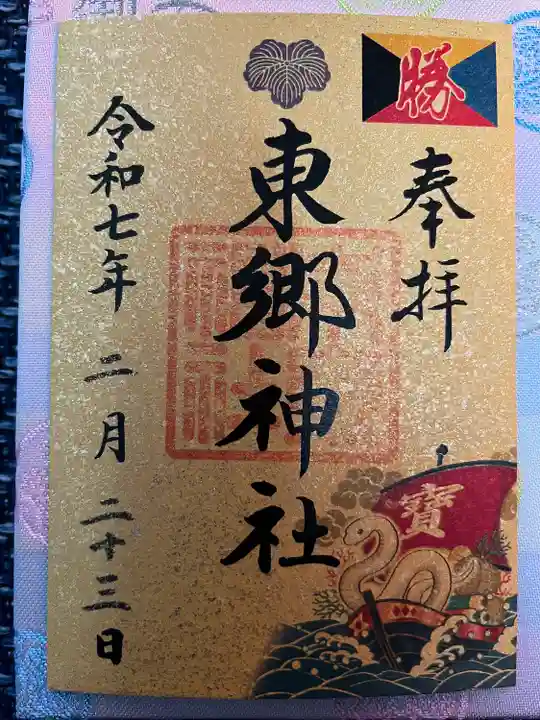 勝
奉拝
東郷神社
令和七年 二月 二十三日
寶